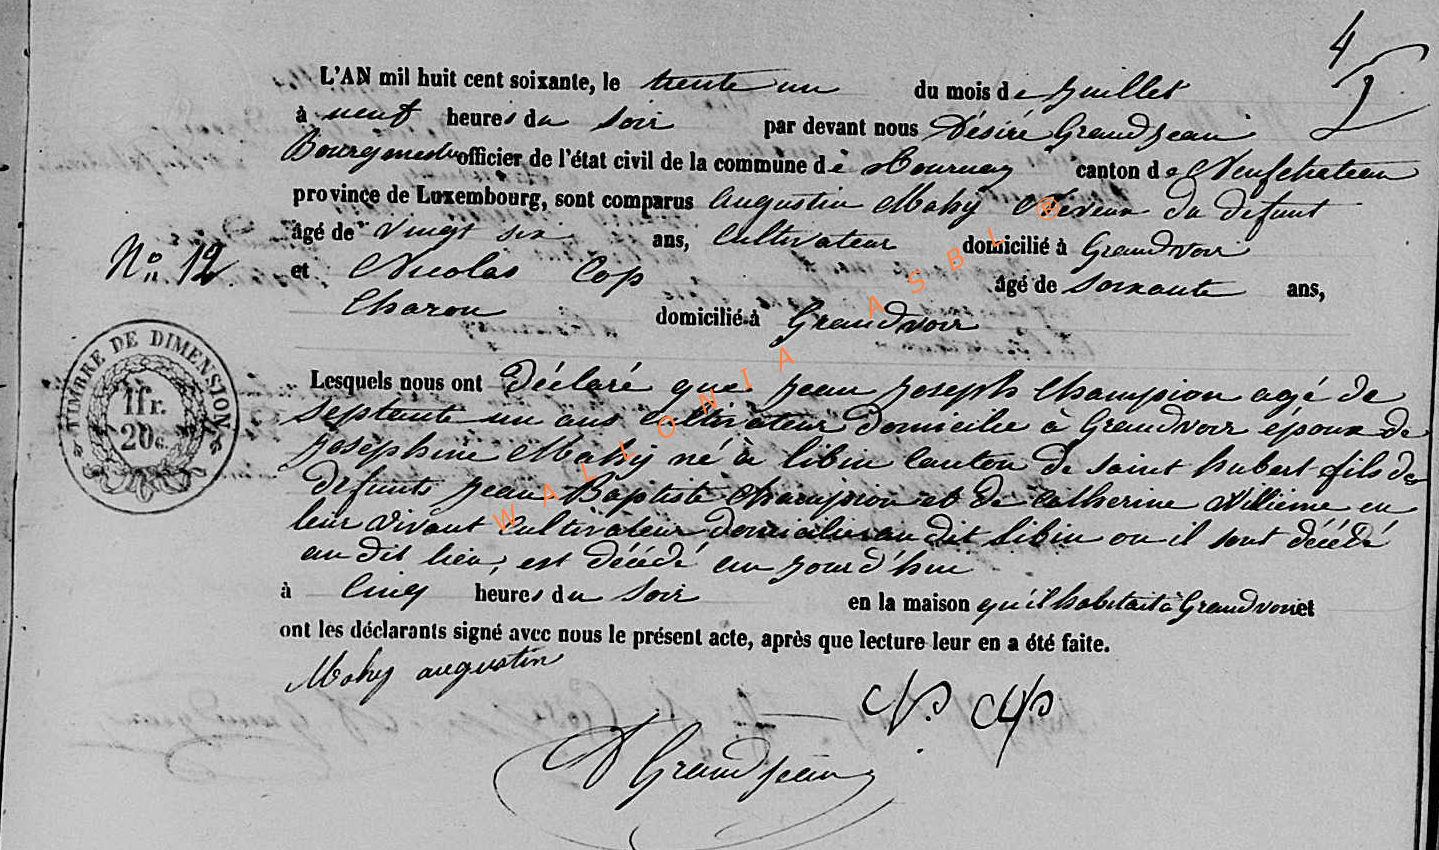 4
L'AN mil huit cent soixante, le trente un du mois de juillet
à neuf heures du soir par devant nous Désiré Grandjean
Bourgmestre officier de l'état civil de la commune de Tournay canton de Neufchateau
province de Luxembourg, sont comparus Augustin Mahy Neveux du defunt
âgé de vingt six ans, Cultivateur domicilié à Grandvoir
N° 12.
et Nicolas Cop âgé de soixante ans,
Charon domicilié à Grandvoir
TIMBRE DE DIMENSION
1 fr.
20 c.
Lesquels nous ont déclaré que jean joseph Champion agé de
septante un ans cultivateur domicilie à Grandvoir époux de
joséphine Mahy né à libin Canton de saint hubert fils de
defunts jean Baptiste Champion et de Catherine Willieme en
leur vivant Cultivateur domiciliés au dit libin ou il sont décédé
au dit lieu, est décédé au jourd'hui
à Cinq heures du soir en la maison qu'il habitait à Grandvoir et
ont les déclarants signé avec nous le présent acte, après que lecture leur en a été faite.
Mahy augustin
D Grandjean
WALLONIA ASBL ®